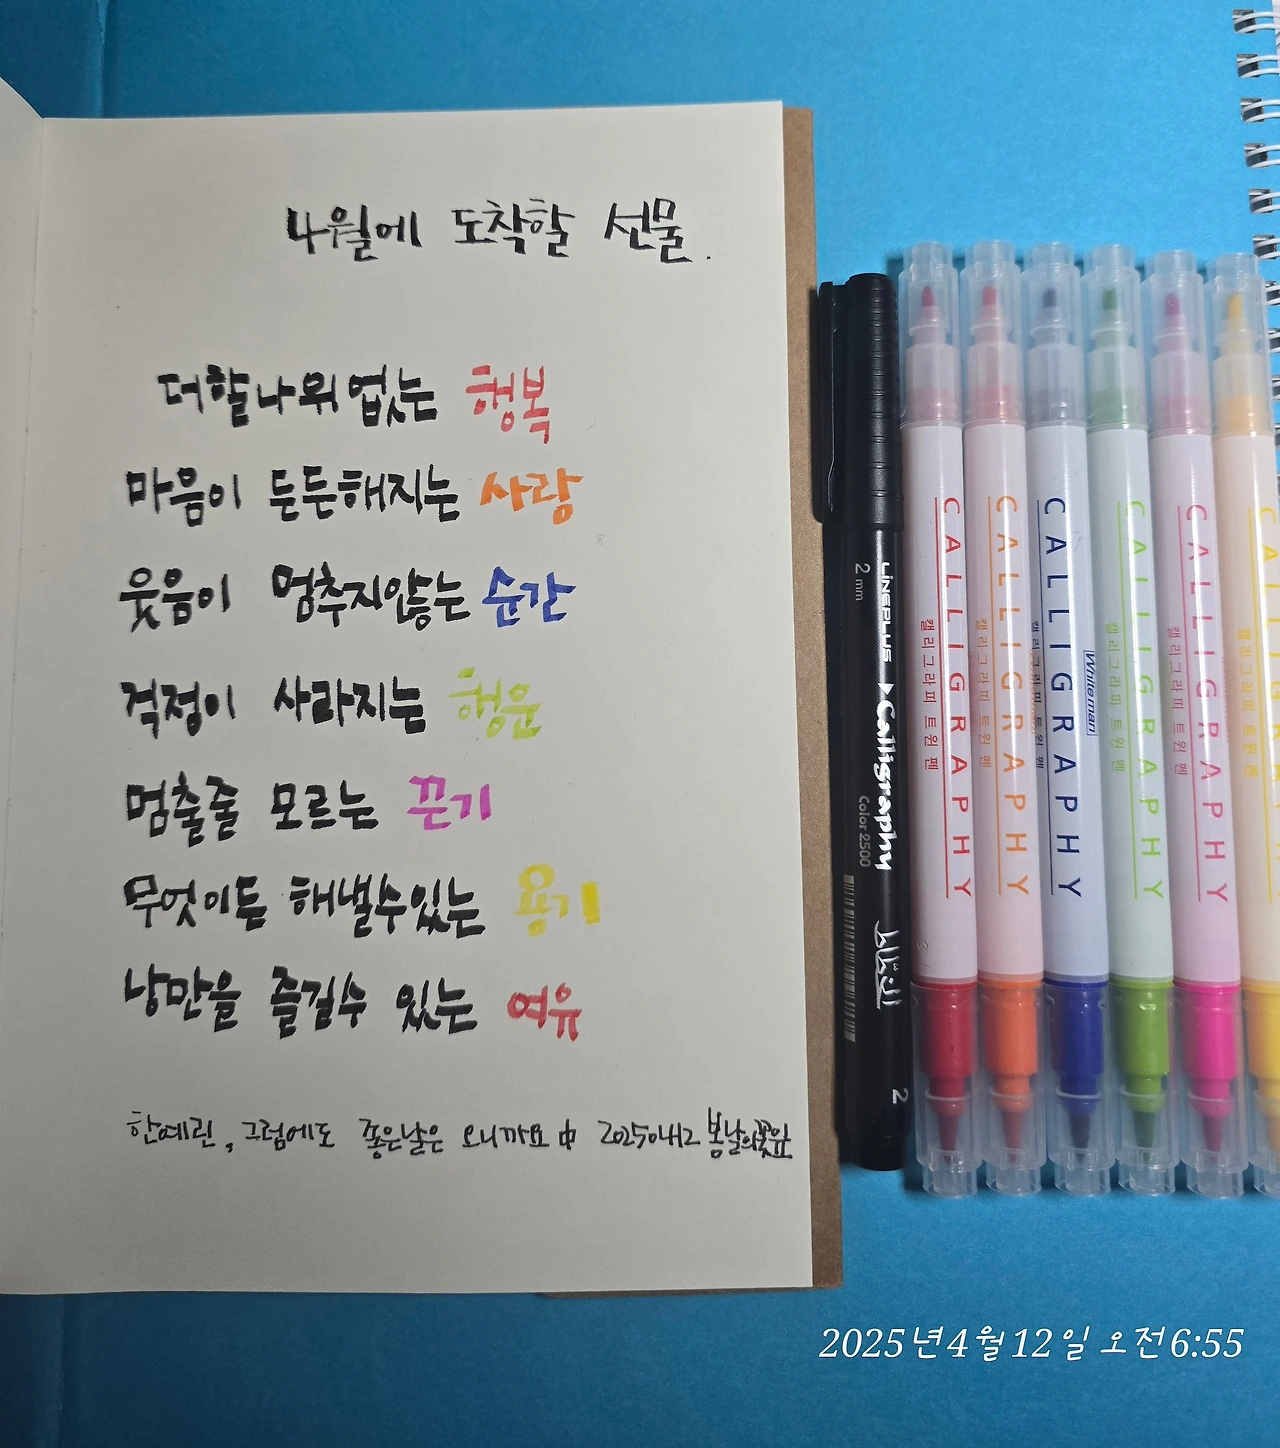 4월에 도착할 선물.
더할나위없는 행복
마음이 든든해지는 사랑
웃음이 멈추지않는 순간
걱정이 사라지는 행운
멈출줄 모르는 끈기
무엇이든 해낼수있는 용기
낭만을 즐길수 있는 여유
한예린, 그럼에도 좋은날은 오니까요 中 20250412 봄날의꽃잎
2 mm LINEPLUS ▶Calligraphy Color 2500 붓글씨 2
CALLIGRAPHY
캘리그라피 트윈펜
CALLIGRAPHY
캘리그라피 트윈펜
Whiteman
CALLIGRAPHY
캘리그라피 트윈펜
CALLIGRAPHY
캘리그라피 트윈펜
CALLIGRAPHY
캘리그라피 트윈펜
2025년4월12일 오전6:55